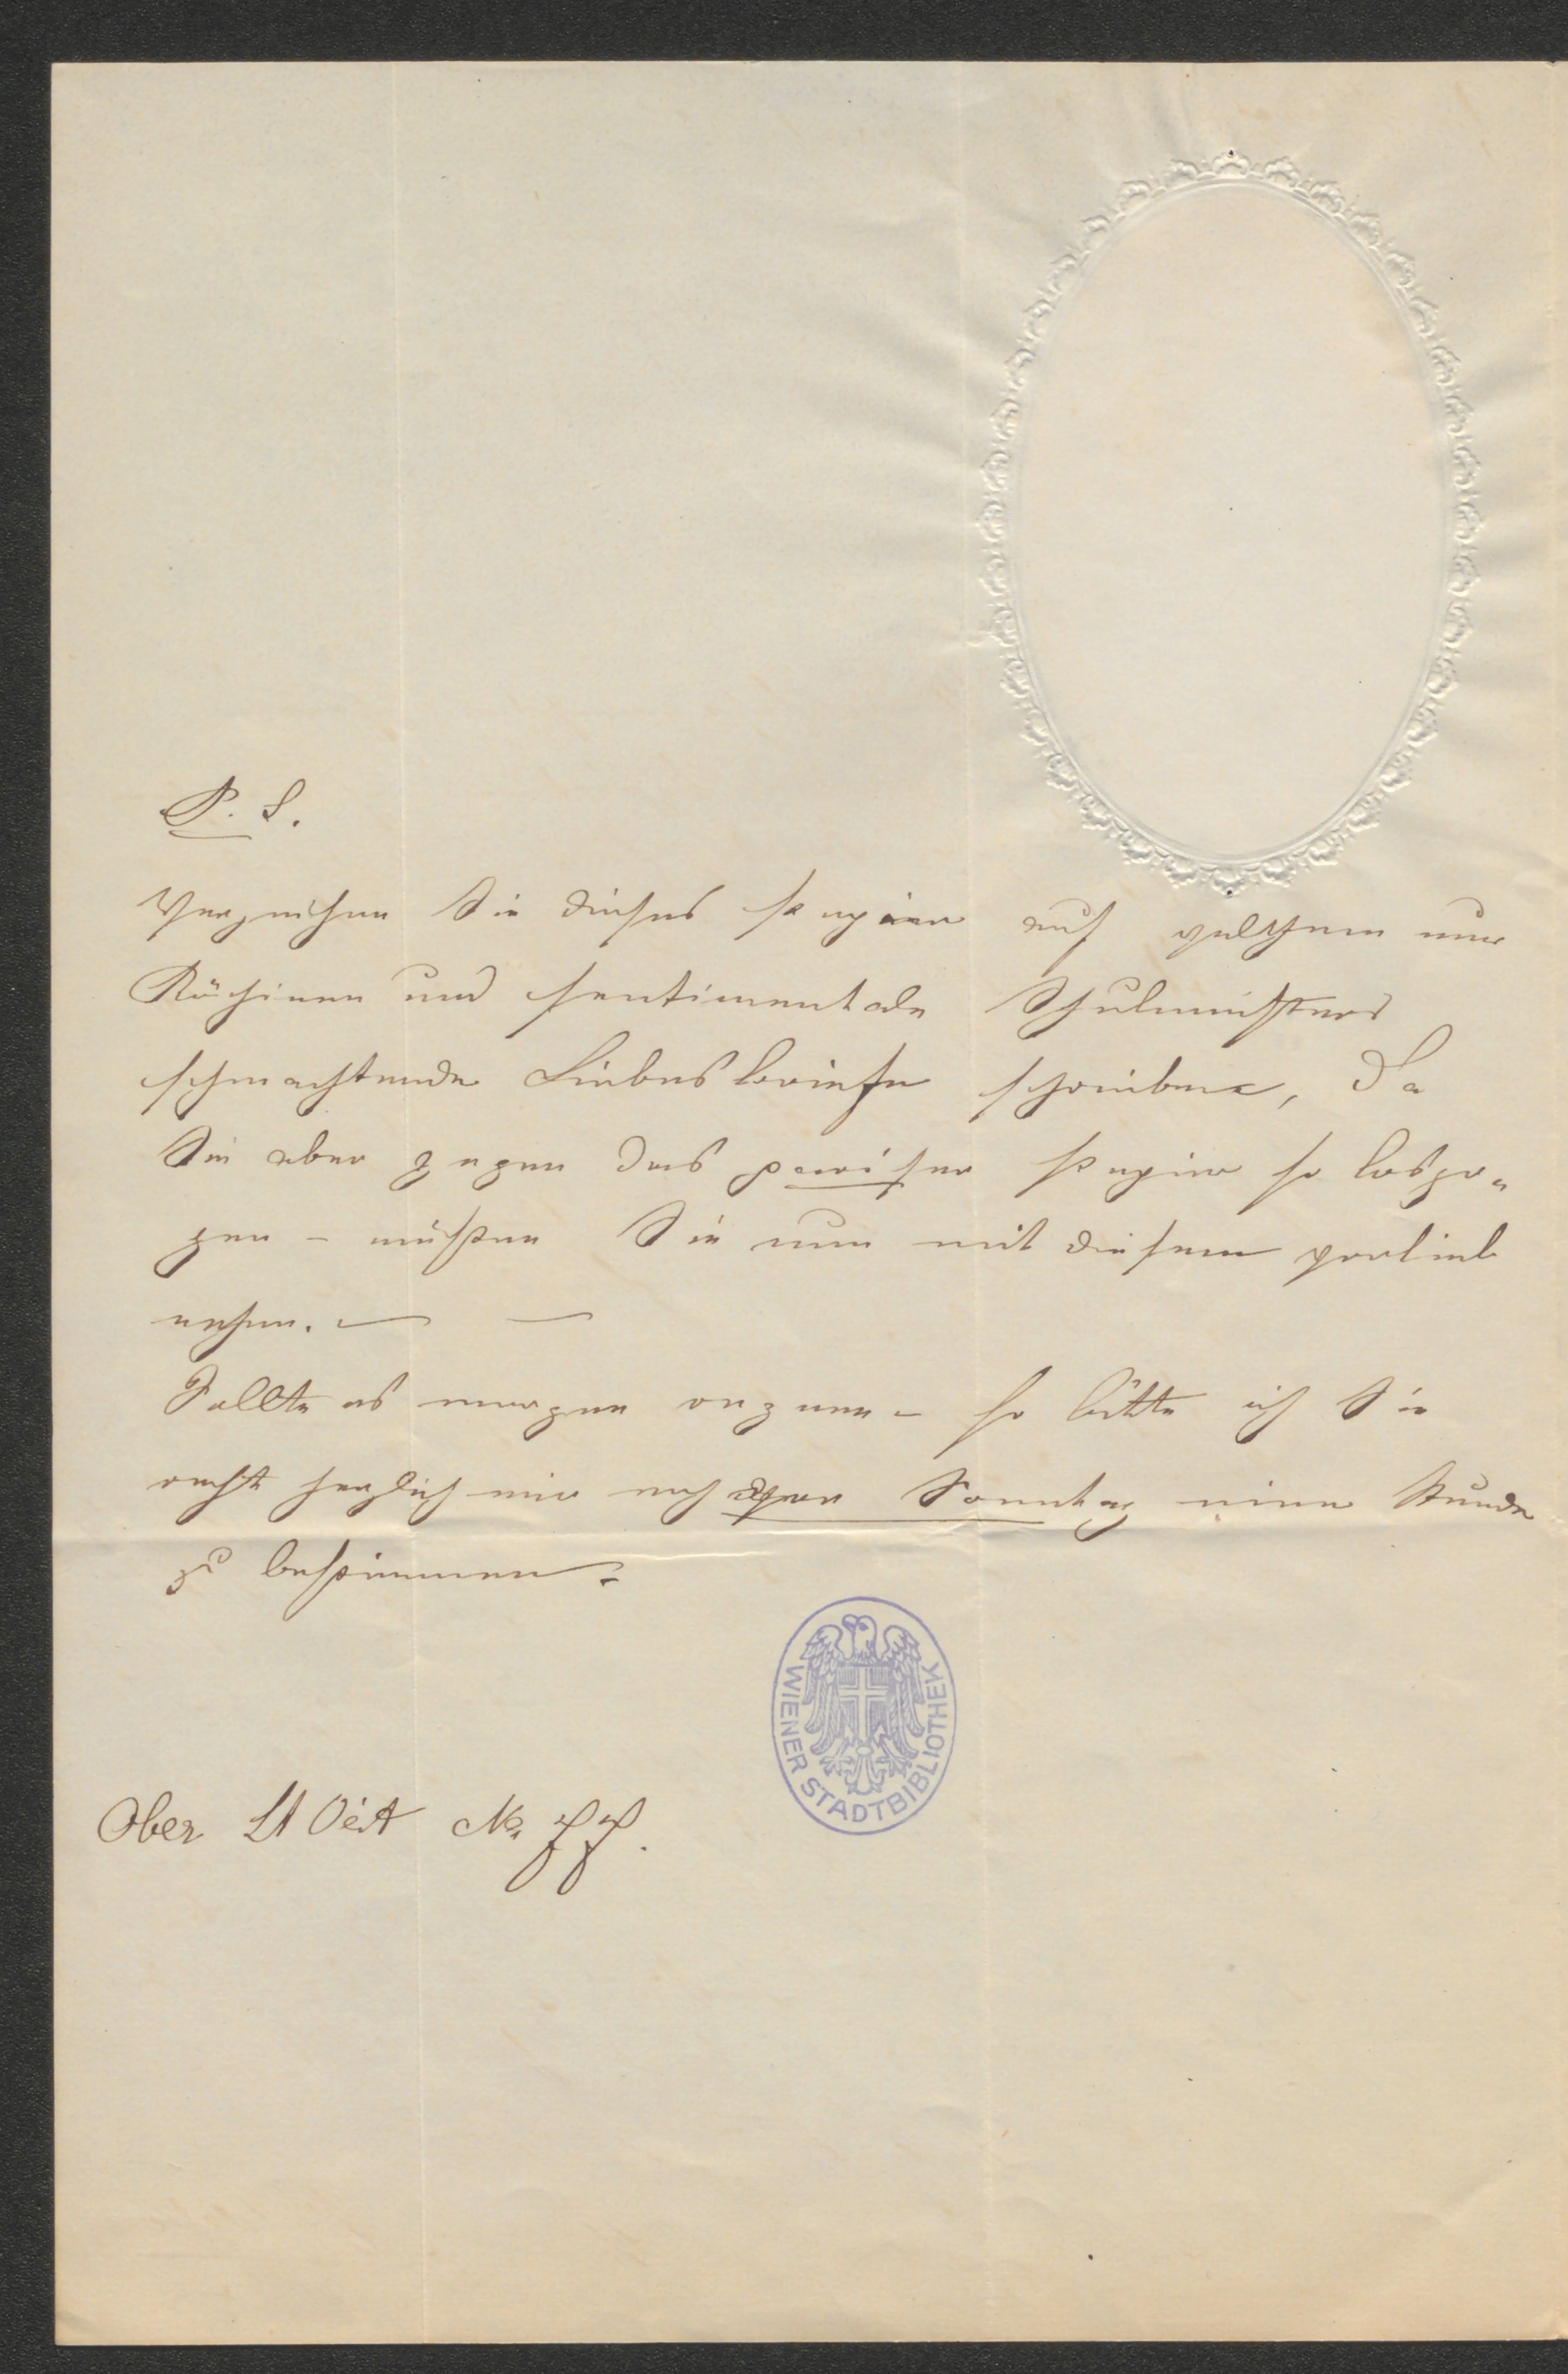 P. S.
Verzeihen Sie dieses Papier auf welchem nur
Köchinen und sentimentale Schulmeisters
schmachtende Liebesbriefe schreiben, Da
Sie aber gegen das pariser Papier so loszo-
gen – müßen Sie nun mit diesem vorlieb
nehmen. — —
Sollte es morgen regnen – so bitte ich Sie
recht herzlich mir noch Sonntag eine Stunde
zu bestimmen.
WIENER STADTBIBLIOTHEK
Ober St Veit No 77.